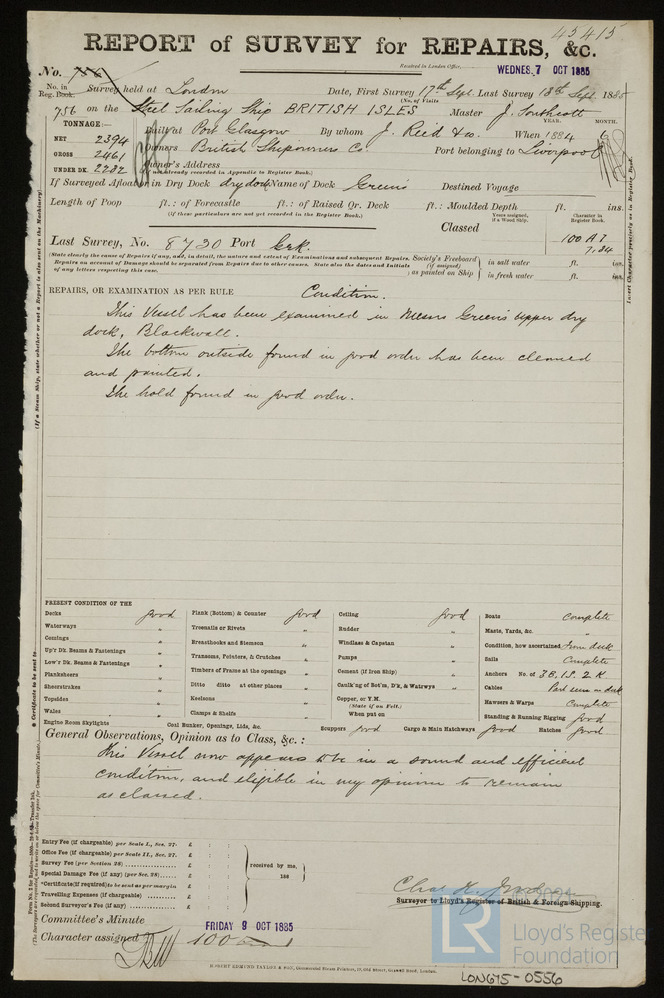 45415
REPORT of SURVEY for REPAIRS, &c.
Received in London Office, WEDNES. 7 OCT 1885
No. 756
No. in Reg. Book. Survey held at London Date, First Survey 17th Sept. Last Survey 18th Sept. 1885
(No. of Visits
756 on the Steel Sailing Ship BRITISH ISLES Master J. Southcott
TONNAGE: Built at Port Glasgow By whom J. Reid & Co. When 1884
YEAR. MONTH.
NET 2394
GROSS 2461 Owners British Shipowners Co. Port belonging to Liverpool
UNDER DK. 2282 Owner's Address
(If not already recorded in Appendix to Register Book.)
If Surveyed Afloat or in Dry Dock dry dock Name of Dock Green's Destined Voyage
Length of Poop ft.: of Forecastle ft.: of Raised Qr. Deck ft.: Moulded Depth ft. ins.
(If these particulars are not yet recorded in the Register Book.)
Years assigned, if a Wood Ship. Character in Register Book.
Classed
Last Survey, No. 8730 Port Crk. 100 A 1
7.84
(State clearly the cause of Repairs if any, and, in detail, the nature and extent of Examinations and subsequent Repairs.
Repairs on account of Damage should be separated from Repairs due to other causes. State also the dates and Initials
of any letters respecting this case.
Society's Freeboard (if assigned) as painted on Ship in salt water ft. ins.
in fresh water ft. ins.
REPAIRS, OR EXAMINATION AS PER RULE Condition.
This Vessel has been examined in Messrs Green's upper dry
dock, Blackwall.
The bottom outside found in good order has been cleaned
and painted.
The hold found in good order.
PRESENT CONDITION OF THE
Decks good Plank (Bottom) & Counter good Ceiling good Boats Complete
Waterways " Treenails or Rivets " Rudder " Masts, Yards, &c. "
Comings " Breasthooks and Stemson " Windlass & Capstan " Condition, how ascertained from deck
Up'r Dk. Beams & Fastenings " Transoms, Pointers, & Crutches " Pumps " Sails Complete
Low'r Dk. Beams & Fastenings " Timbers of Frame at the openings " Cement (if Iron Ship) " Anchors No. of 3B. 1S. 2K
Planksheers " Ditto ditto at other places " Caulk'ng of Bot'm, D'k, & Watrwys " Cables Part seen on deck
Sheerstrakes " Keelsons " Copper, or Y.M. (State if on Felt.) Hawsers & Warps Complete
Topsides " Clamps & Shelfs " When put on Standing & Running Rigging good
Wales "
Engine Room Skylights Coal Bunker, Openings, Lids, &c. Scuppers good Cargo & Main Hatchways good Hatches good
General Observations, Opinion as to Class, &c.:
This Vessel now appears to be in a sound and efficient
condition, and eligible in my opinion to remain
as classed.
Entry Fee (if chargeable) per Scale I., Sec. 27. £ : :
Office Fee (if chargeable) per Scale II., Sec. 27. £ : :
Survey Fee (per Section 28) £ : :
Special Damage Fee (if any) (per Sec. 28) £ : :
*Certificate (if required) to be sent as per margin £ : :
Travelling Expenses (if chargeable) £ : :
Second Surveyor's Fee (if any) £ : :
received by me,
188
Surveyor to Lloyd's Register of British & Foreign Shipping.
Committee's Minute FRIDAY 9 OCT 1885
Character assigned 100 A 1
ROBERT EDMUND TAYLOR & SON, Commercial Steam Printers, 19, Old Street, Goswell Road, London.
LON675-0556
Lloyd's Register
Foundation
LR
Insert Character precisely as in Register Book.
(If a Steam Ship, state whether or not a Report is also sent on the Machinery)
* Certificate to be sent to